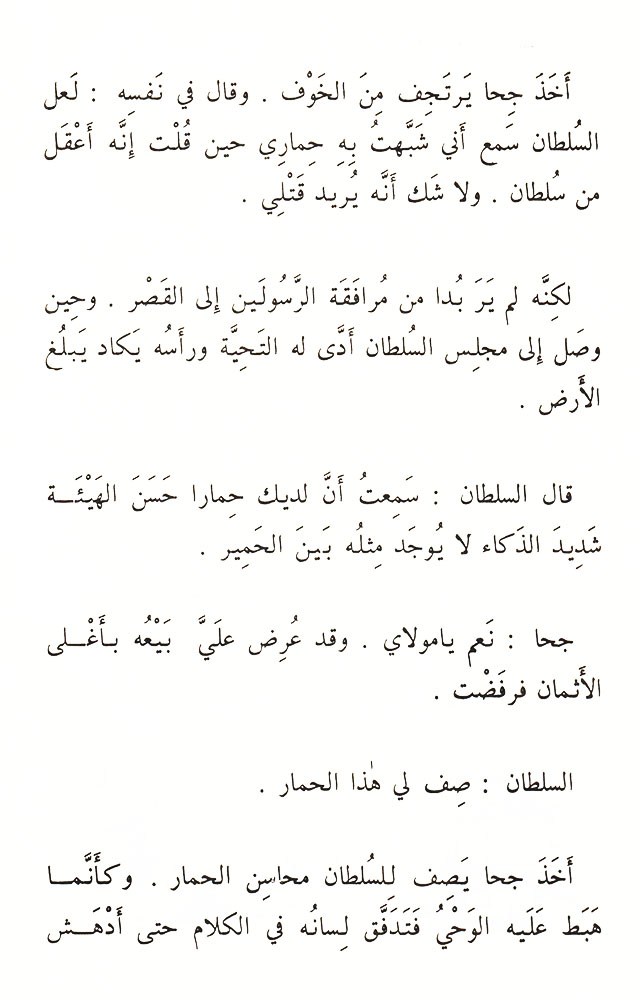 أَخَذَ جحا يَرتَجِف مِنَ الخَوْف . وقال في نَفسِه : لَعل
السُلطان سَمع أَني شَبَّهتُ بِهِ حِماري حين قُلْت إِنَّه أَعْقَل
من سُلطان . ولا شَك أَنَّه يُريد قَتْلِي .
لكِنَّه لم يَرَ بُدا من مُرافَقَة الرَّسُولَين إِلى القَصْر . وحِين
وصَل إِلى مجلِس السُلطان أَدَّى له التَحِيَّة ورأَسُه يَكاد يَبلُغ
الأَرض .
قال السلطان : سَمِعتُ أَنَّ لديك حِمارا حَسَنَ الهَيْئَــة
شَدِيدَ الذَكاء لا يُوجَد مِثلُه بَينَ الحَمِير .
جحا : نَعم يامولاي . وقد عُرِض علَيَّ بَيْعُه بـأَغْــلى
الأَثمان فرفَضْت .
السلطان : صِف لي هٰذا الحمار .
أَخَذَ جحا يَصِف لِلسُلطان محاسِن الحمار . وكـأَنَّمـــا
هَبَط عَلَيه الوَحْيُ فَتَدَفَّق لِسانُه في الكلام حتى أَدْهَــش